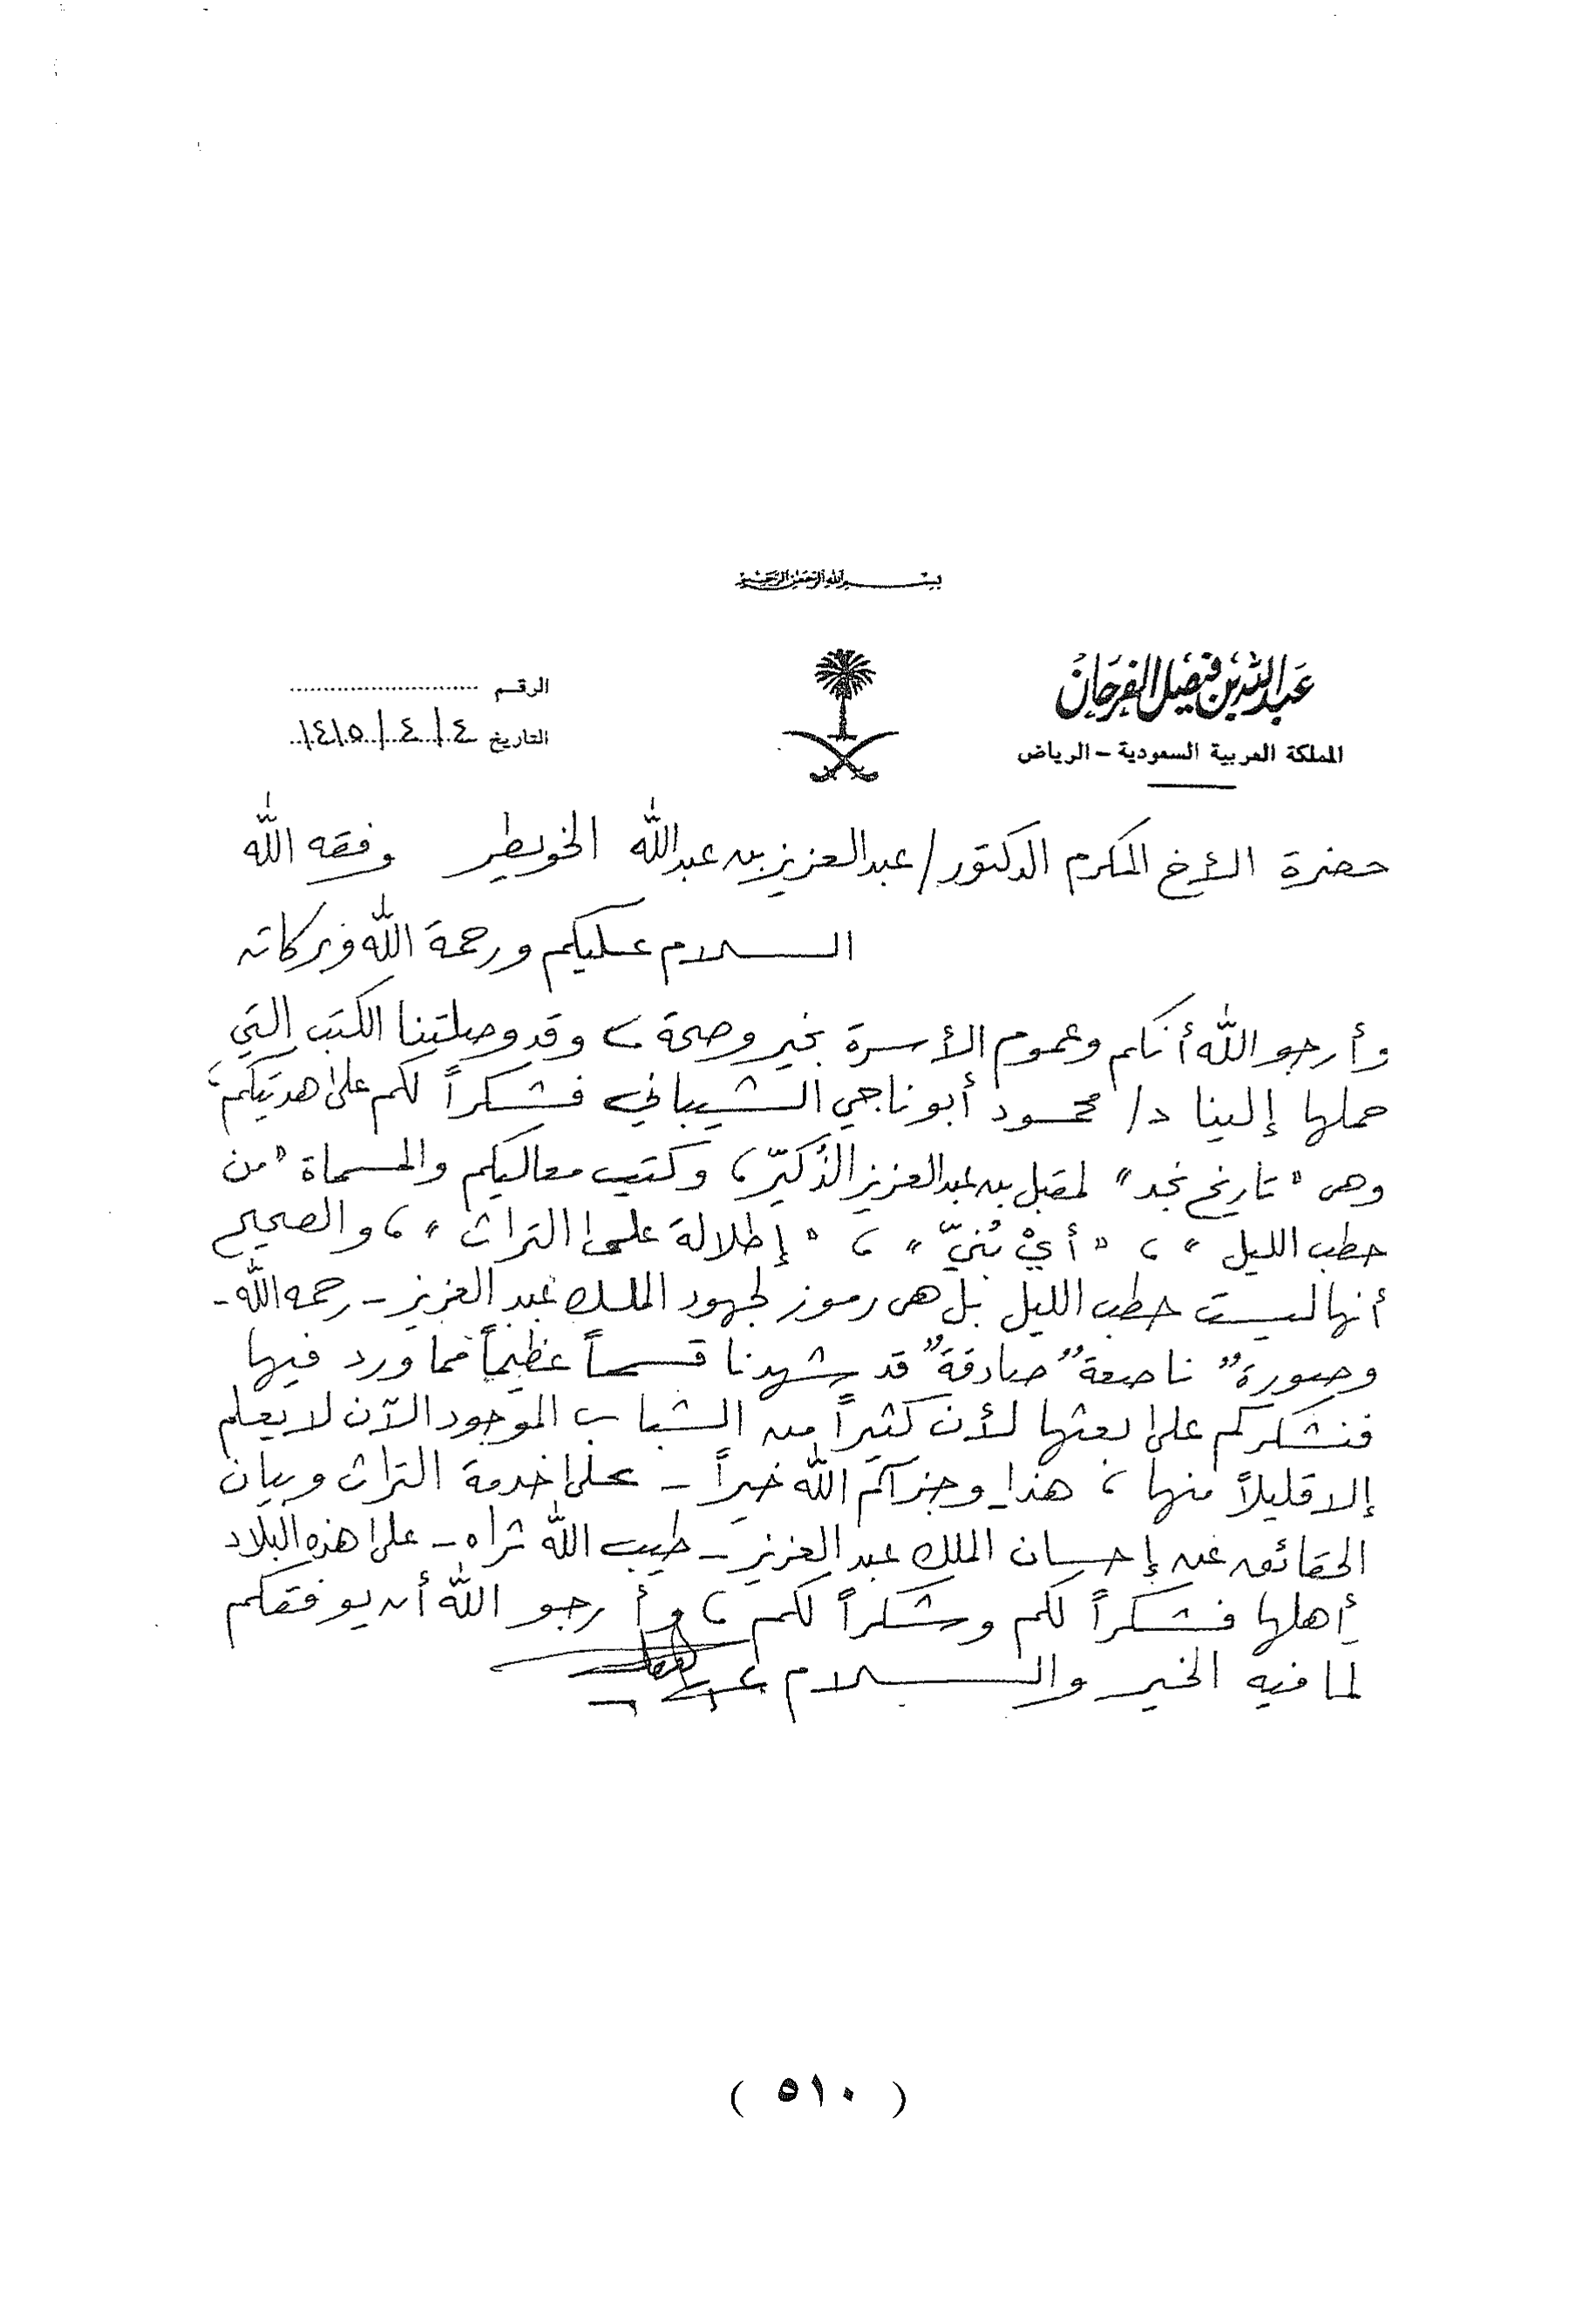 بسم الله الرحمن الرحيم
عبدالله بن فيصل الفرحان
المملكة العربية السعودية - الرياض
الرقم
التاريخ ٤/٤/١٤١٥
حضرة الأخ المكرم الدكتور/ عبدالعزيز بن عبدالله الخويطر وفقه الله
السلام عليكم ورحمة الله وبركاته
وأرجو الله أنكم وعموم الأسرة بخير وصحة، وقد وصلتينا الكتب التي
حملها إلينا د/ محمود أبو ناجي الشيباني فشكراً لكم على هديتكم؛
وهي "تاريخ نجد" لمقبل بن عبدالعزيز الذُكيّر، وكتيب معاليكم والمسماة "من
حطب الليل"، "أيْ بُنيّ"، "إطلالة على التراث"، والصحيح
أنها ليست حطب الليل بل هي رموز لجهود الملك عبد العزيز - رحمه الله -
وصورةٌ ناصعةٌ صادقةٌ قد شهدنا قسماً عظيماً مما ورد فيها
فنشكركم على بعثها لأن كثيراً من الشباب الموجود الآن لا يعلم
إلا قليلاً منها، هذا وجزاكم الله خيراً - على خدمة التراث وبيان
الحقائق عن إحسان الملك عبد العزيز - طيب الله ثراه - على هذه البلاد
أهلها فشكراً لكم وشكراً لكم، وأرجو الله أن يوفقكم
لما فيه الخير والسلام
( ٥١٠ )